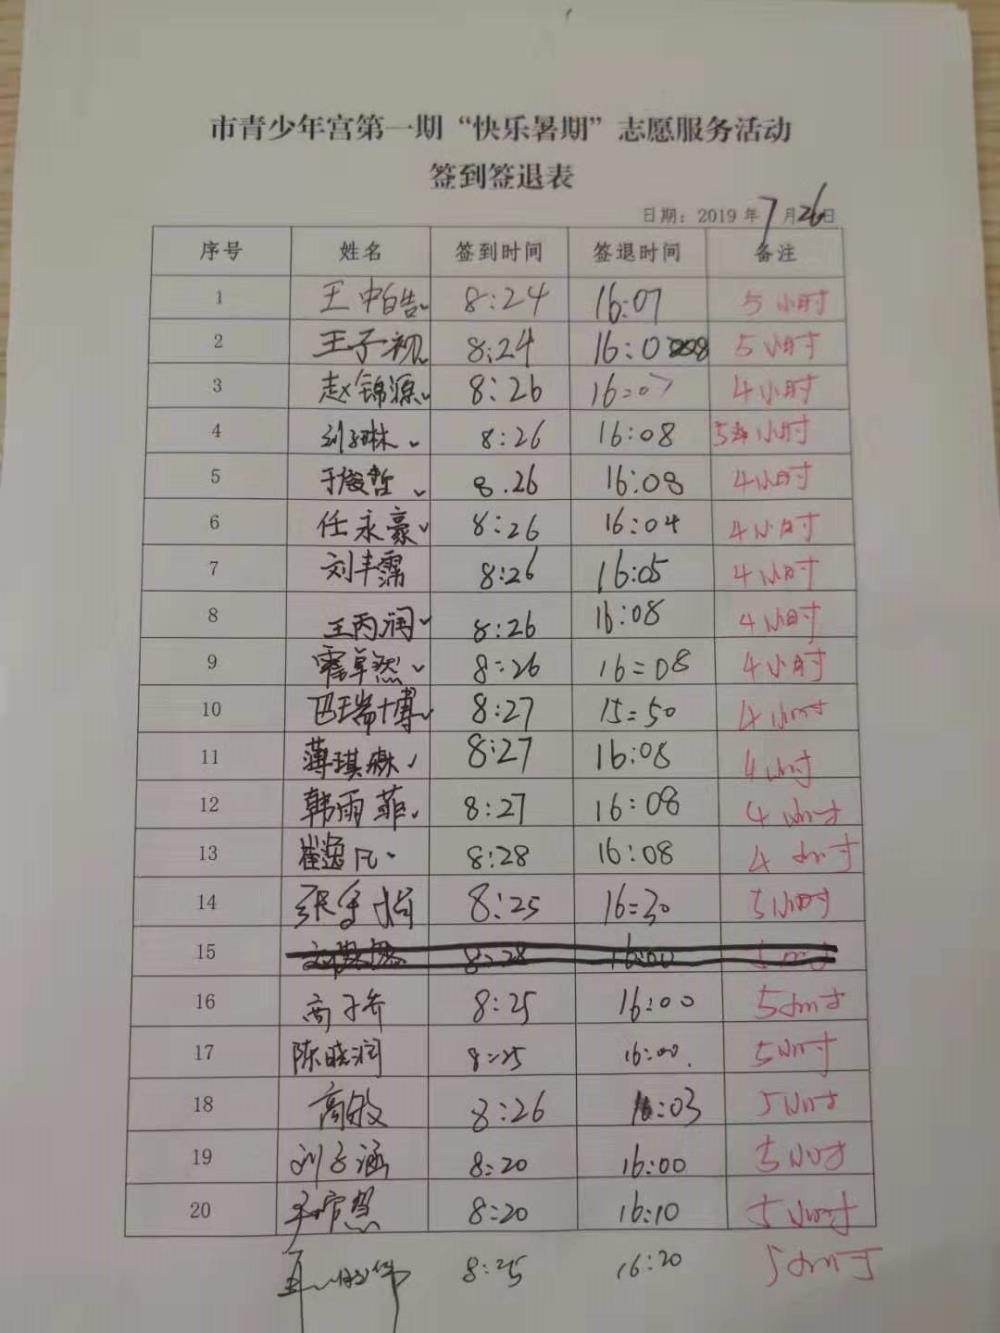 市青少年宫第一期“快乐暑期”志愿服务活动
签到签退表
日期：2019年7月26日
序号 姓名 签到时间 签退时间 备注
1 王中皓 8:24 16:07 5小时
2 王子初 8:24 16:08 5小时
3 赵锦源 8:26 16:07 4小时
4 刘子琳 8:26 16:08 5小时
5 于俊哲 8.26 16:08 4小时
6 任永豪 8:26 16:04 4小时
7 刘丰霈 8:26 16:05 4小时
8 王丙润 8:26 16:08 4小时
9 霍卓然 8:26 16:08 4小时
10 巴瑞博 8:27 15:50 4小时
11 薄琪淼 8:27 16:08 4小时
12 韩雨菲 8:27 16:08 4小时
13 崔逸凡 8:28 16:08 4小时
14 张 8:25 16:30 5小时
15 8:28 16:00 5小时
16 高子乔 8:25 16:00 5小时
17 陈晓润 8:25 16:00. 5小时
18 高敏 8:26 16:03 5小时
19 刘子涵 8:20 16:00 5小时
20 8:20 16:10 5小时
8:25 16:20 5小时